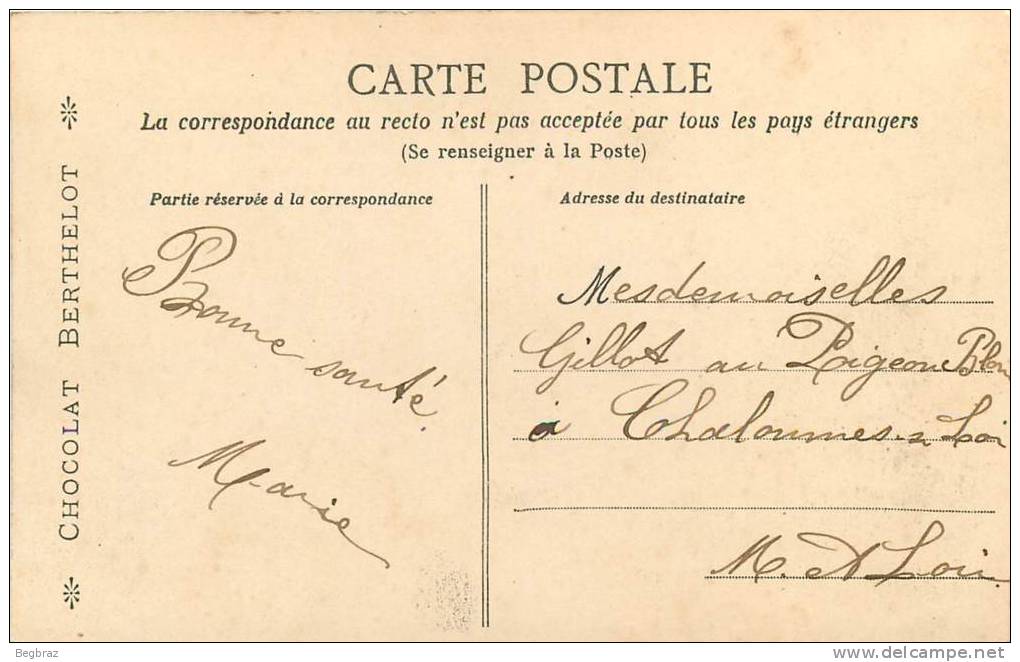 CARTE POSTALE
La correspondance au recto n'est pas acceptée par tous les pays étrangers
(Se renseigner à la Poste)
CHOCOLAT BERTHELOT
Partie réservée à la correspondance
Bonne santé.
Marie
Adresse du destinataire
Mesdemoiselles
Gillot au Pigeon Blan
à Chalonnes s Loi
M. et Loire
Begbraz
www.delcampe.com